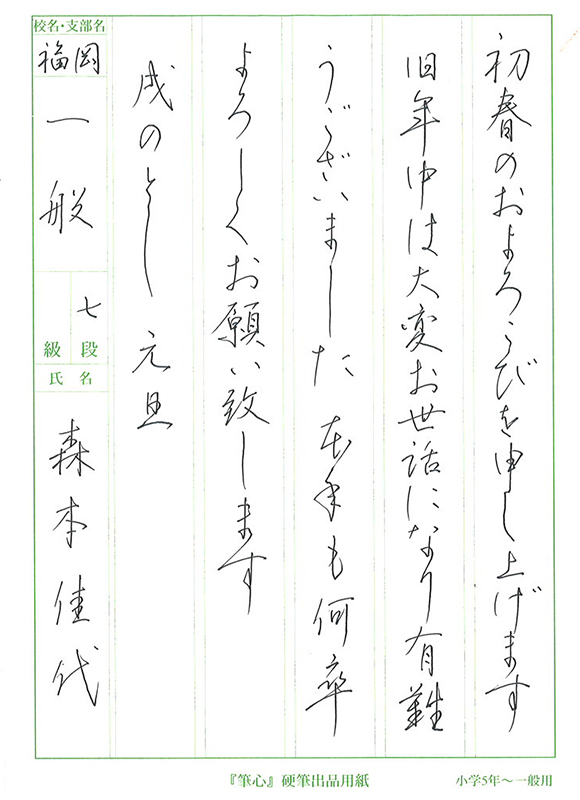 初春のおよろこびを申し上げます
旧年中は大変お世話になり有難
うございました 本年も何卒
よろしくお願い致します
戌のとし 元旦
校名・支部名
福岡
一般
七段
級
氏名
森本佳代
『筆心』硬筆出品用紙
小学5年～一般用